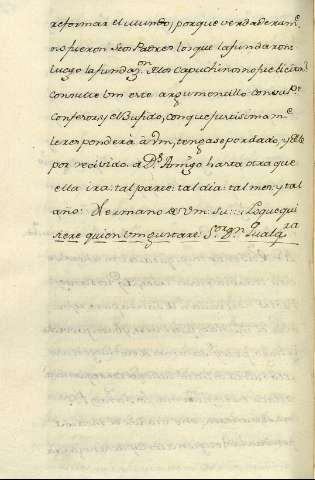 reformar el mundo, porque verdaderam.te
no fueron Seo Padres los que la fundaron:
luego la fundaz.on de los Capuchinos no fue licita.
Consulte Vm este argumentillo con su P.e
Confesor, y el Bufido, con que justisimam.te
le responderá á Vm, tengase por dado, y
por recivido. á D.s Amigo hasta otra que
ella ira: tal parte: tal dia: tal mes, y tal
año: Hermano de Vm su::: Lo que qui
siere quien Vm gustare. S.or Qualq.ra